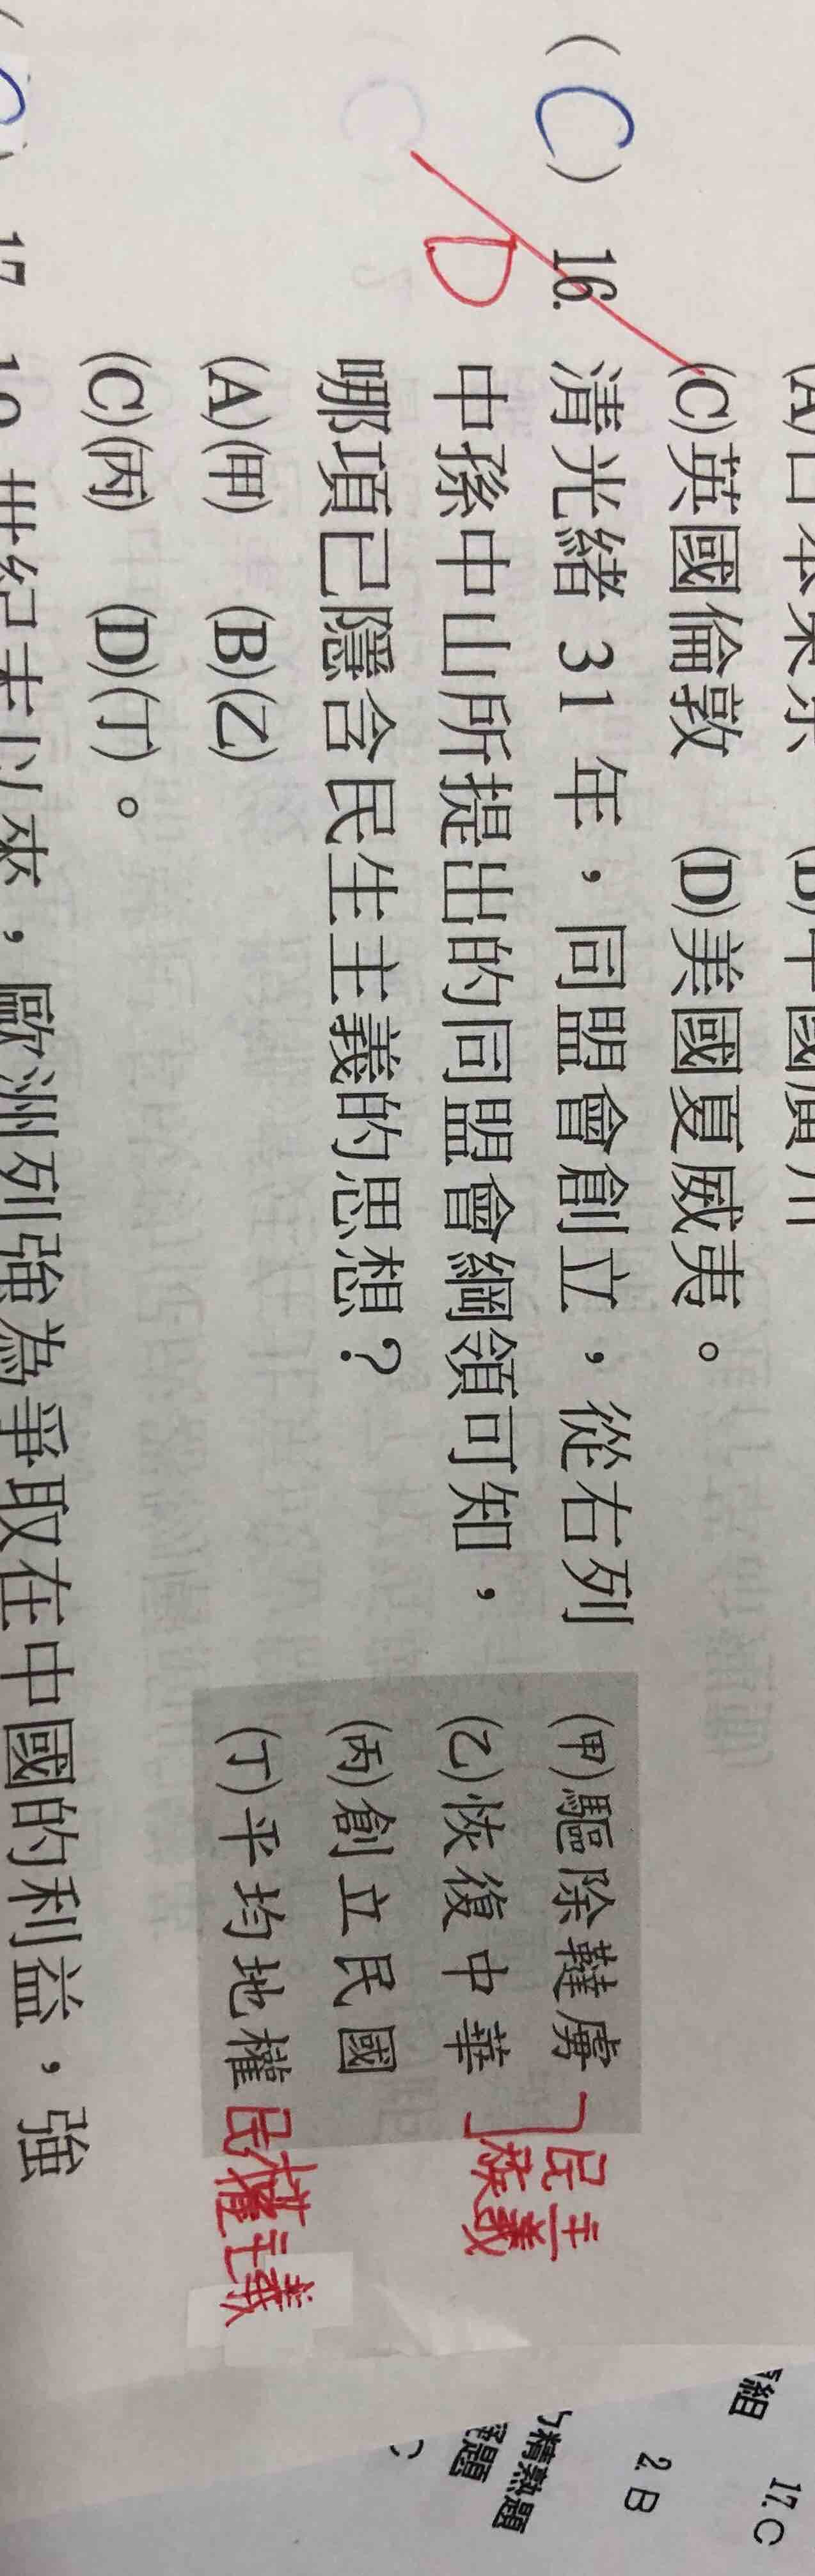 (C)英國倫敦 (D)美國夏威夷。
(C) 16. 清光緒 31 年,同盟會創立,從右列
中孫中山所提出的同盟會綱領可知,
哪項已隱含民生主義的思想?
(A)(甲) (B)(乙)
(C)(丙) (D)(丁)。
D
(甲)驅除韃虜
(乙)恢復中華
(丙)創立民國
(丁)平均地權
民族
主義
民權主義
世紀末以來,歐洲列強為爭取在中國的利益,強
17. C
2. B
精熟題